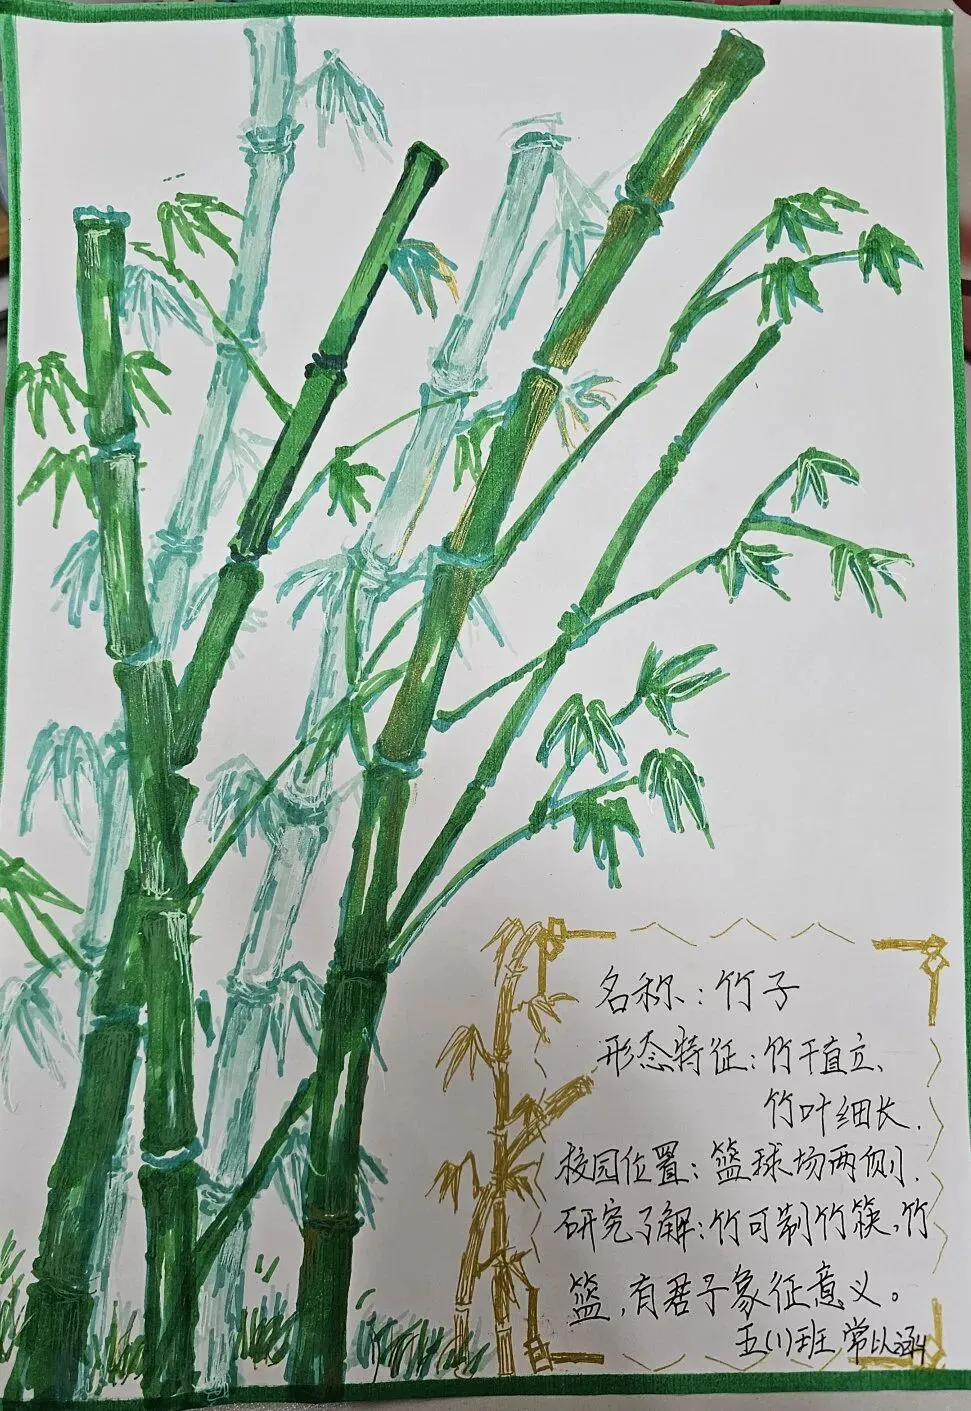 名称：竹子
形态特征：竹干直立、
竹叶细长.
校园位置：篮球场两侧.
研究了解：竹可制竹筷、竹
篮，有君子象征意义。
五(1)班 常以涵